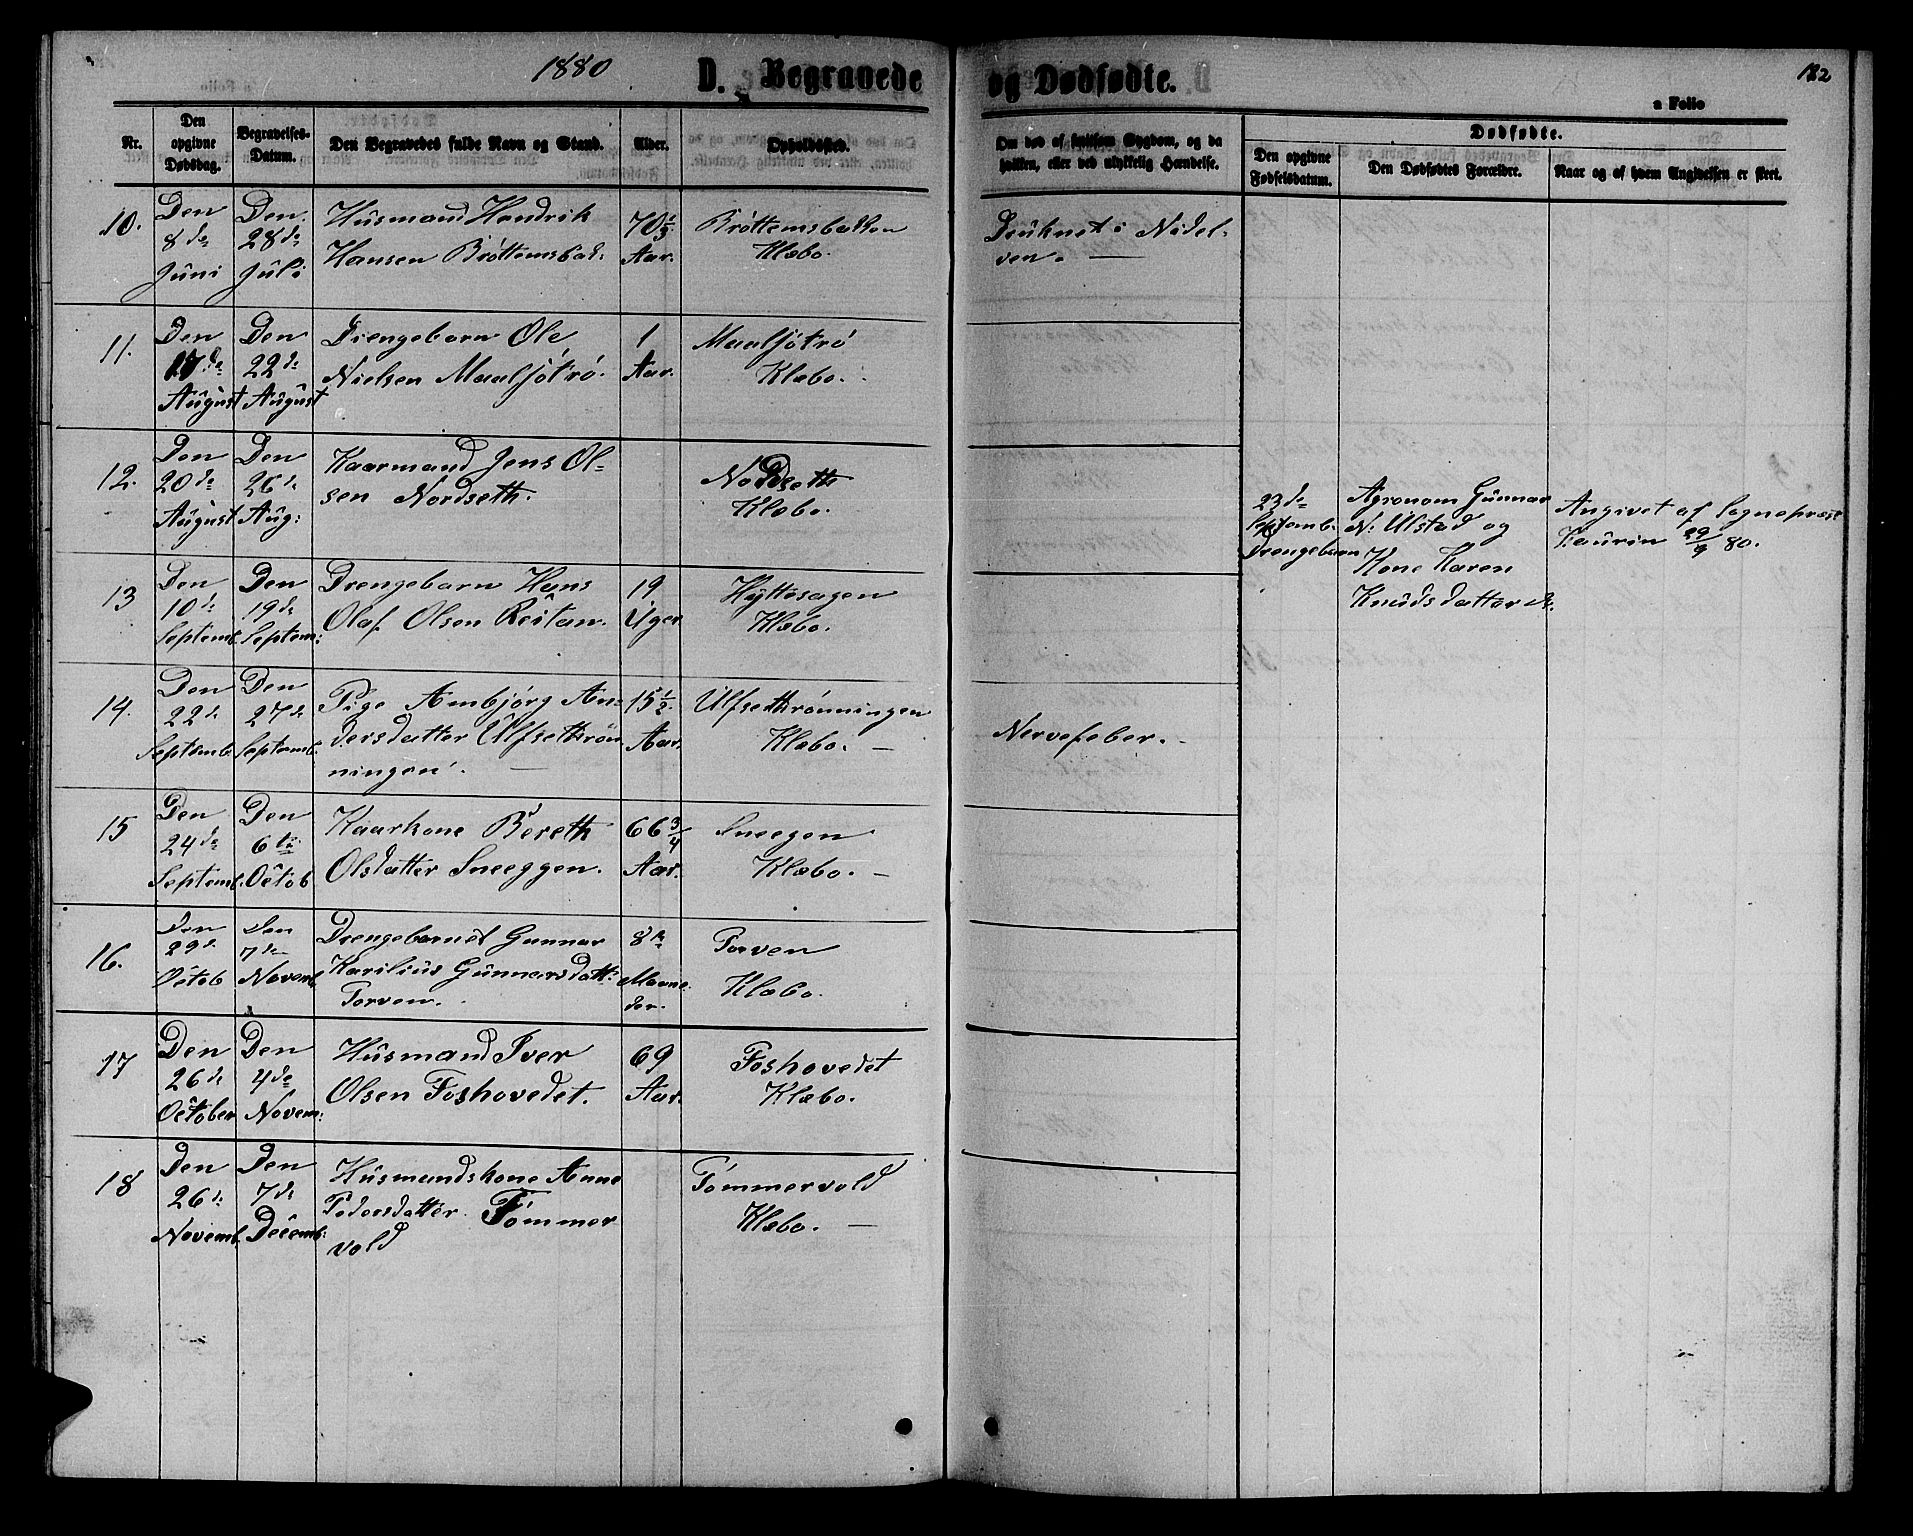 1880
D. Begravede og Dødfødte.
182
a Folio
Nr.
Den opgivne Dødsdag.
Begravelses-Datum.
Den Begravedes fulde Navn og Stand.
Alder.
Opholdssted.
Om død af hvilken Sygdom, og da hvilken, eller ved ulykkelig Hændelse.
Dødfødte.
Den opgivne Fødselsdatum.
Den Dødfødtes Forældre.
Naar og af hvem Angivelsen er skeet.
10.
Den 8de Juni
Den 28de Juli
Husmand Hendrik
Hansen Bröttemsbak.
70 1/3 Aar.
Bröttemsbakken
Klæbo.
Druknet i Nidel-
ven.
11.
Den 17de August
Den 22de August
Drengebarn Ole
Nielsen Maalsjötrö.
1 Aar.
Maalsjötrö
Klæbo.
12.
Den 20de August
Den 26de Aug:
Kaarmand Jens Ol-
sen Nordseth.
Nordseth
Klæbo.
23de Septemb. Drengebarn
Agronom Gunnar
N. Ulstad og
Kone Karen
Knudsdatter
Angivet af Sognepræst
Kaurin 29/9 80.
13
Den 10de Septemb.
Den 19de Septem:
Drengebarn Hans
Olaf Olsen Reitan.
19 Uger
Hyttesagen
Klæbo.
14.
Den 22de Septemb.
Den 27de Septemb.
Pige Ambjörg An-
dersdatter Ulfsethrön-
ningen.
15 1/2 Aar.
Ulfsethrönningen
Klæbo. —
Nervefeber. -
15
Den 24de Septemb.
Den 6te Octob
Kaarkone Bereth
Olsdatter Sneeggen.
66 3/4 Aar.
Sneegen
Klæbo. —
16.
Den 29de Octob
Den 7de Novemb.
Drengebarnet Gunnar
Karilius Gunnarsdatt:
Torven.
8 Maane-
der.
Torven
Klæbo.
17
Den 26de October
Den 4de Novem:
Husmand Iver
Olsen Foshovedet.
69 Aar.
Foshovedet
Klæbo.
18
Den 26de Novemb.
Den 7de Decemb:
Husmandskone Anne
Pedersdatter Tömmer
vold
Tömmervold
Klæbo. —